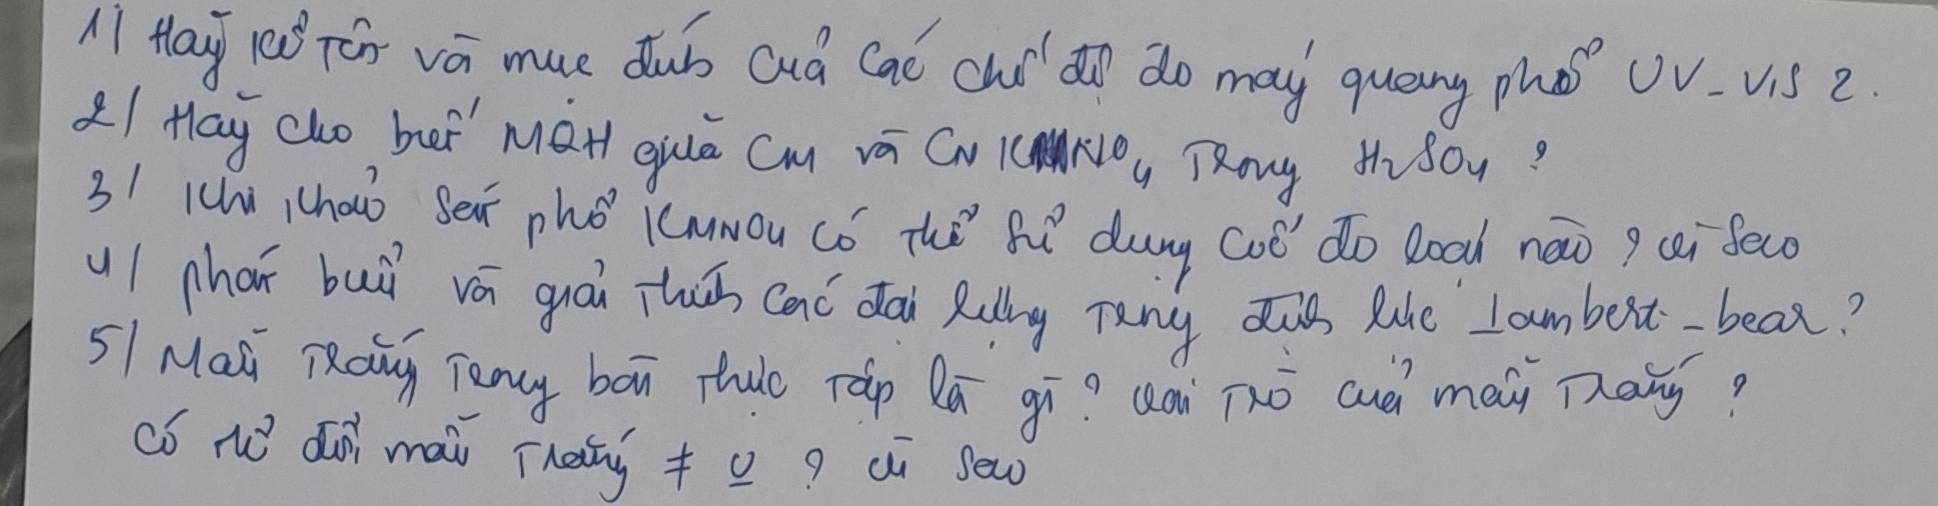 1/ Hãy kể tên và mục đích của các chế độ đo máy quang phổ UV-Vis 2.
2/ Hãy cho biết MQH giữa CM và CN KMnO4 trong H2SO4 ?
3/ Khi khảo sát phổ KMNO4 có thể sử dụng cốc đo loại nào ? vì sao
4/ phát biểu và giải thích các đại lượng trong định luật Lambert-bear ?
5/ Mẫu trắng trong bài thực tập là gì ? vai trò của mẫu trắng ?
có thể đổi mẫu trắng ≠ ? vì sao